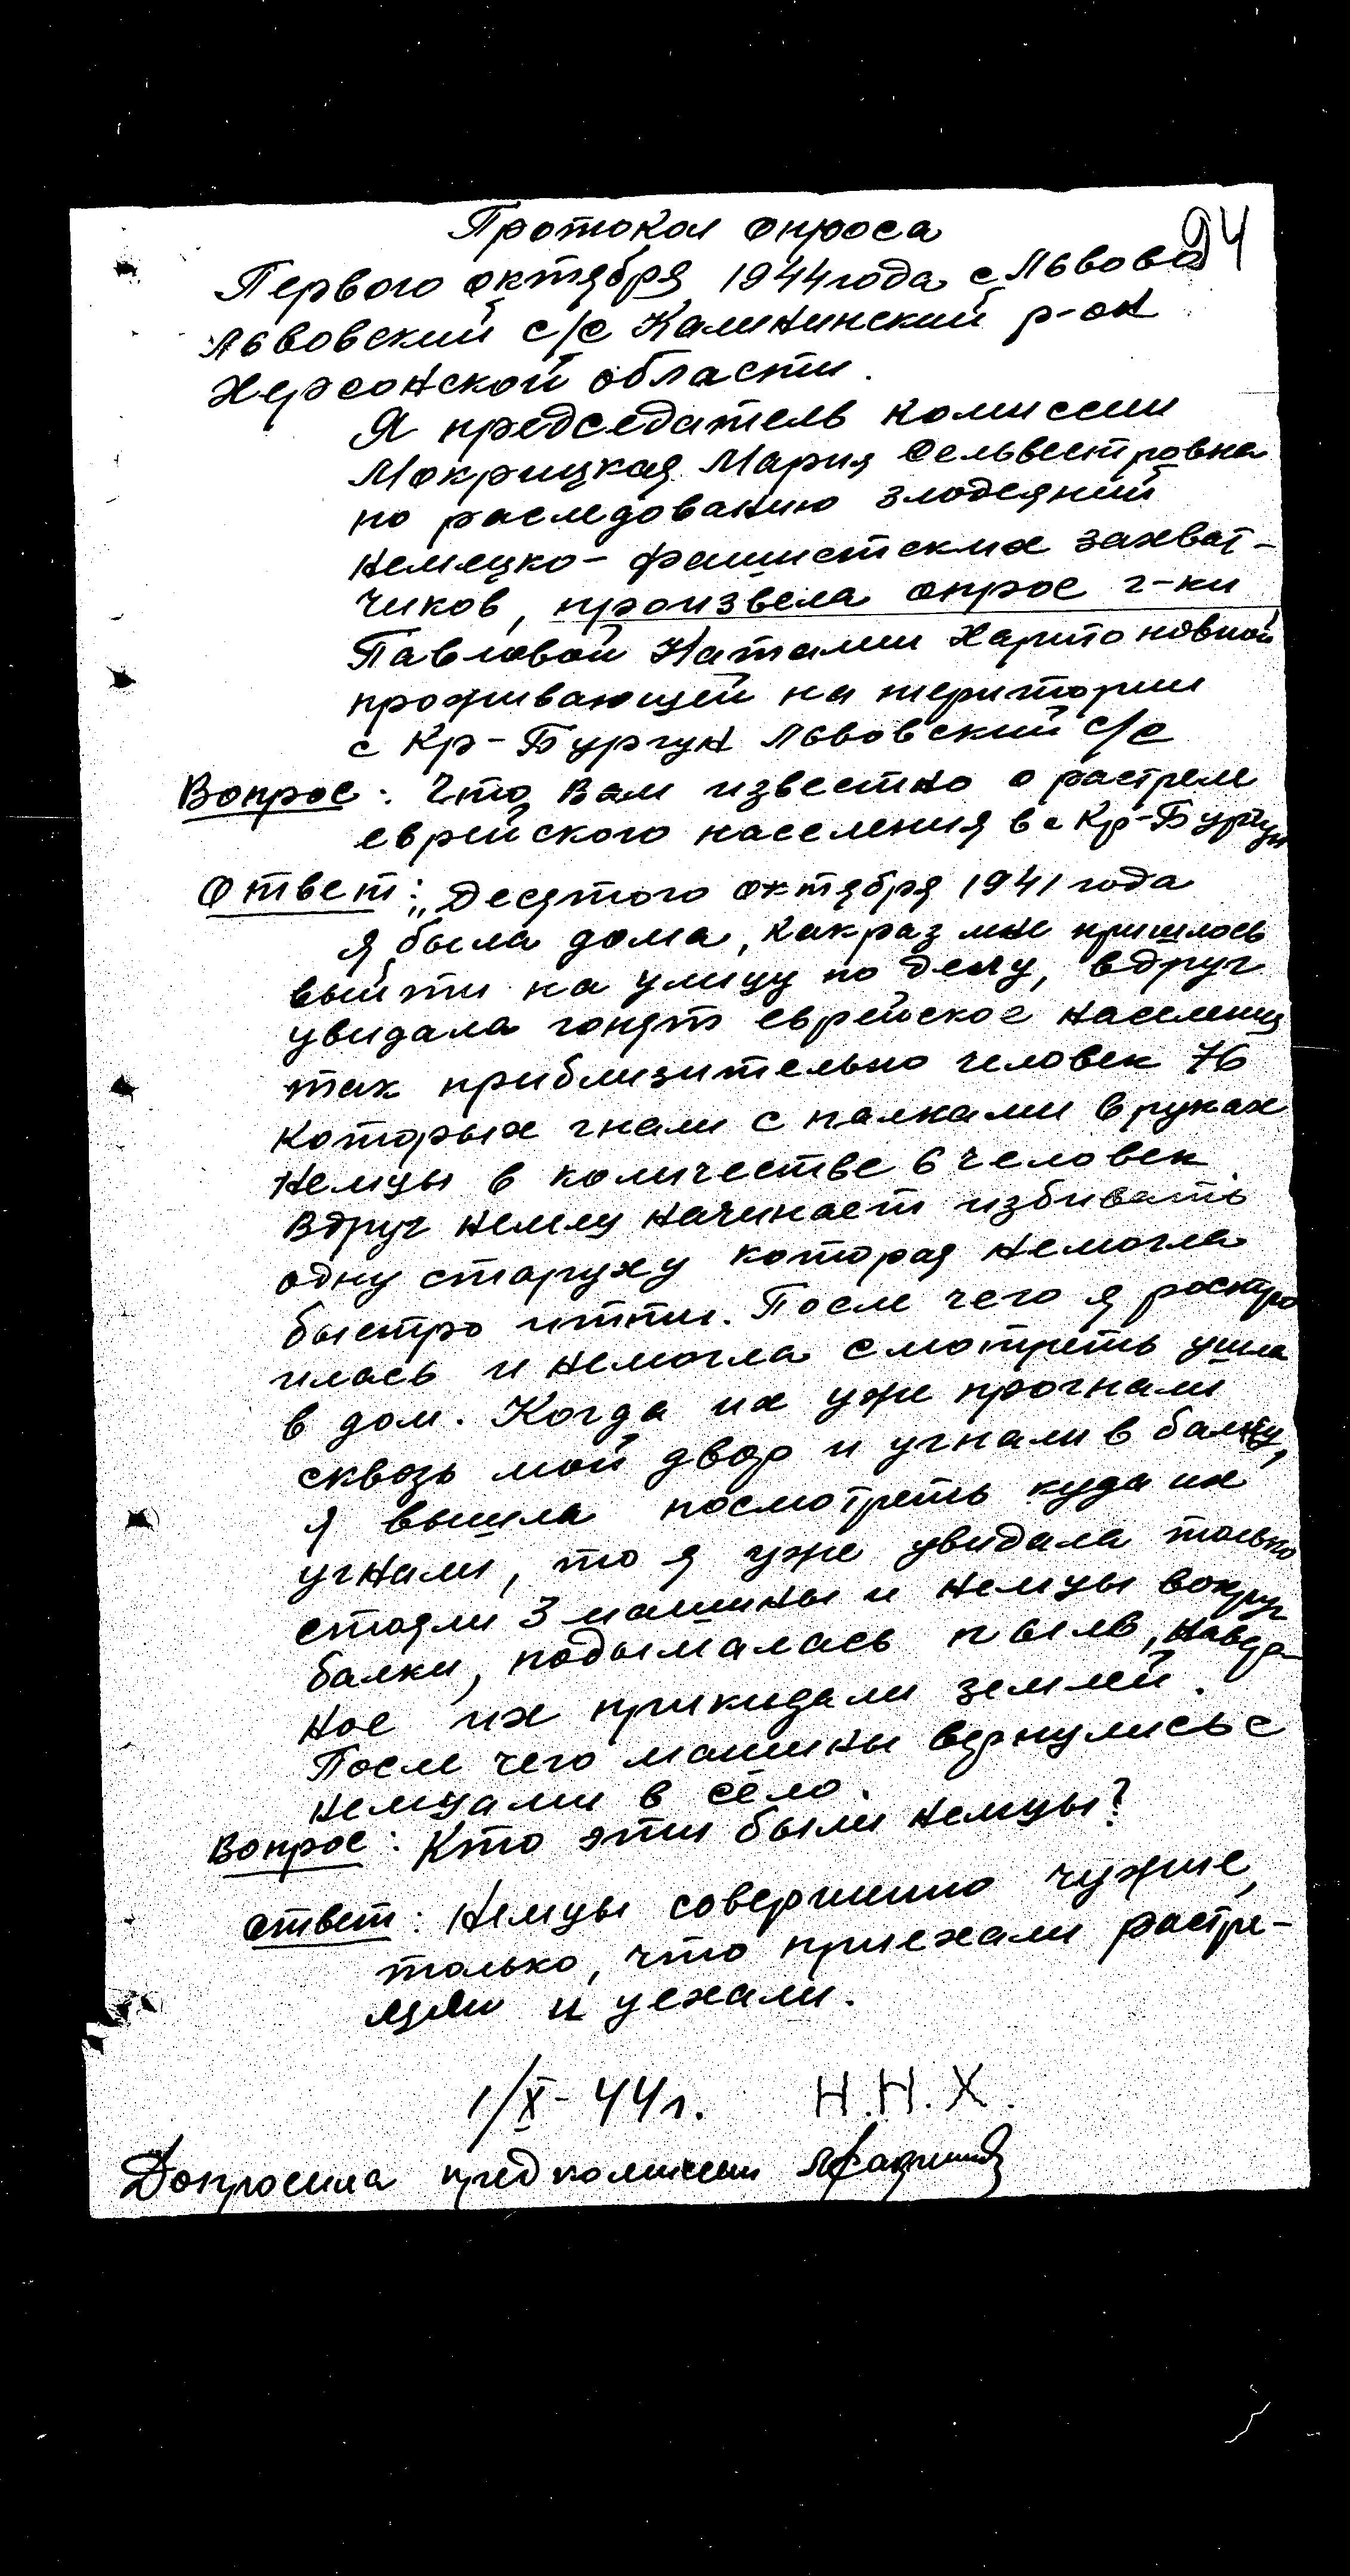 94
Протокол опроса
Первого октября 1944 года с Львово
Львовский с/с Калининский р-он
Херсонской области.
Я председатель комиссии
Мокрицкая Мария Сельвестровна
по раследованию злодеяний
немецко-фашистских захват-
чиков, произвела опрос г-ки
Павловой Наталии Харитоновной
проживающей на територии
с Кр-Бургун Львовский с/с
Вопрос: Что Вам известно о растреле
еврейского населения в с Кр-Бургун
Ответ: „Десятого октября 1941 года
я была дома, как раз мне пришлось
выйти на улицу по делу, вдруг
увидала гонят еврейское население
так приблизительно человек 76
которых гнали с палками в руках
Немцы в количестве 6 человек
Вдруг немец начинает избивать
одну старуху которая немогла
быстро итти. После чего я растро
илась и немогла смотреть ушла
в дом. Когда их уже прогнали
сквозь мой двор и угнали в балку,
я вышла посмотреть куда их
угнали, то я уже увидала только
стояли 3 машины и немцы вокруг
балки, подымалась пыль, навер-
ное их прикидали землей.
После чего машины вернулись с
немцами в село.
Вопрос: Кто эти были немцы?
ответ: Немцы совершенно чужие,
только, что приехали растре-
ляли и уехали.
1/X-44 г. Н.Н.Х.
Допросила пред комиссии